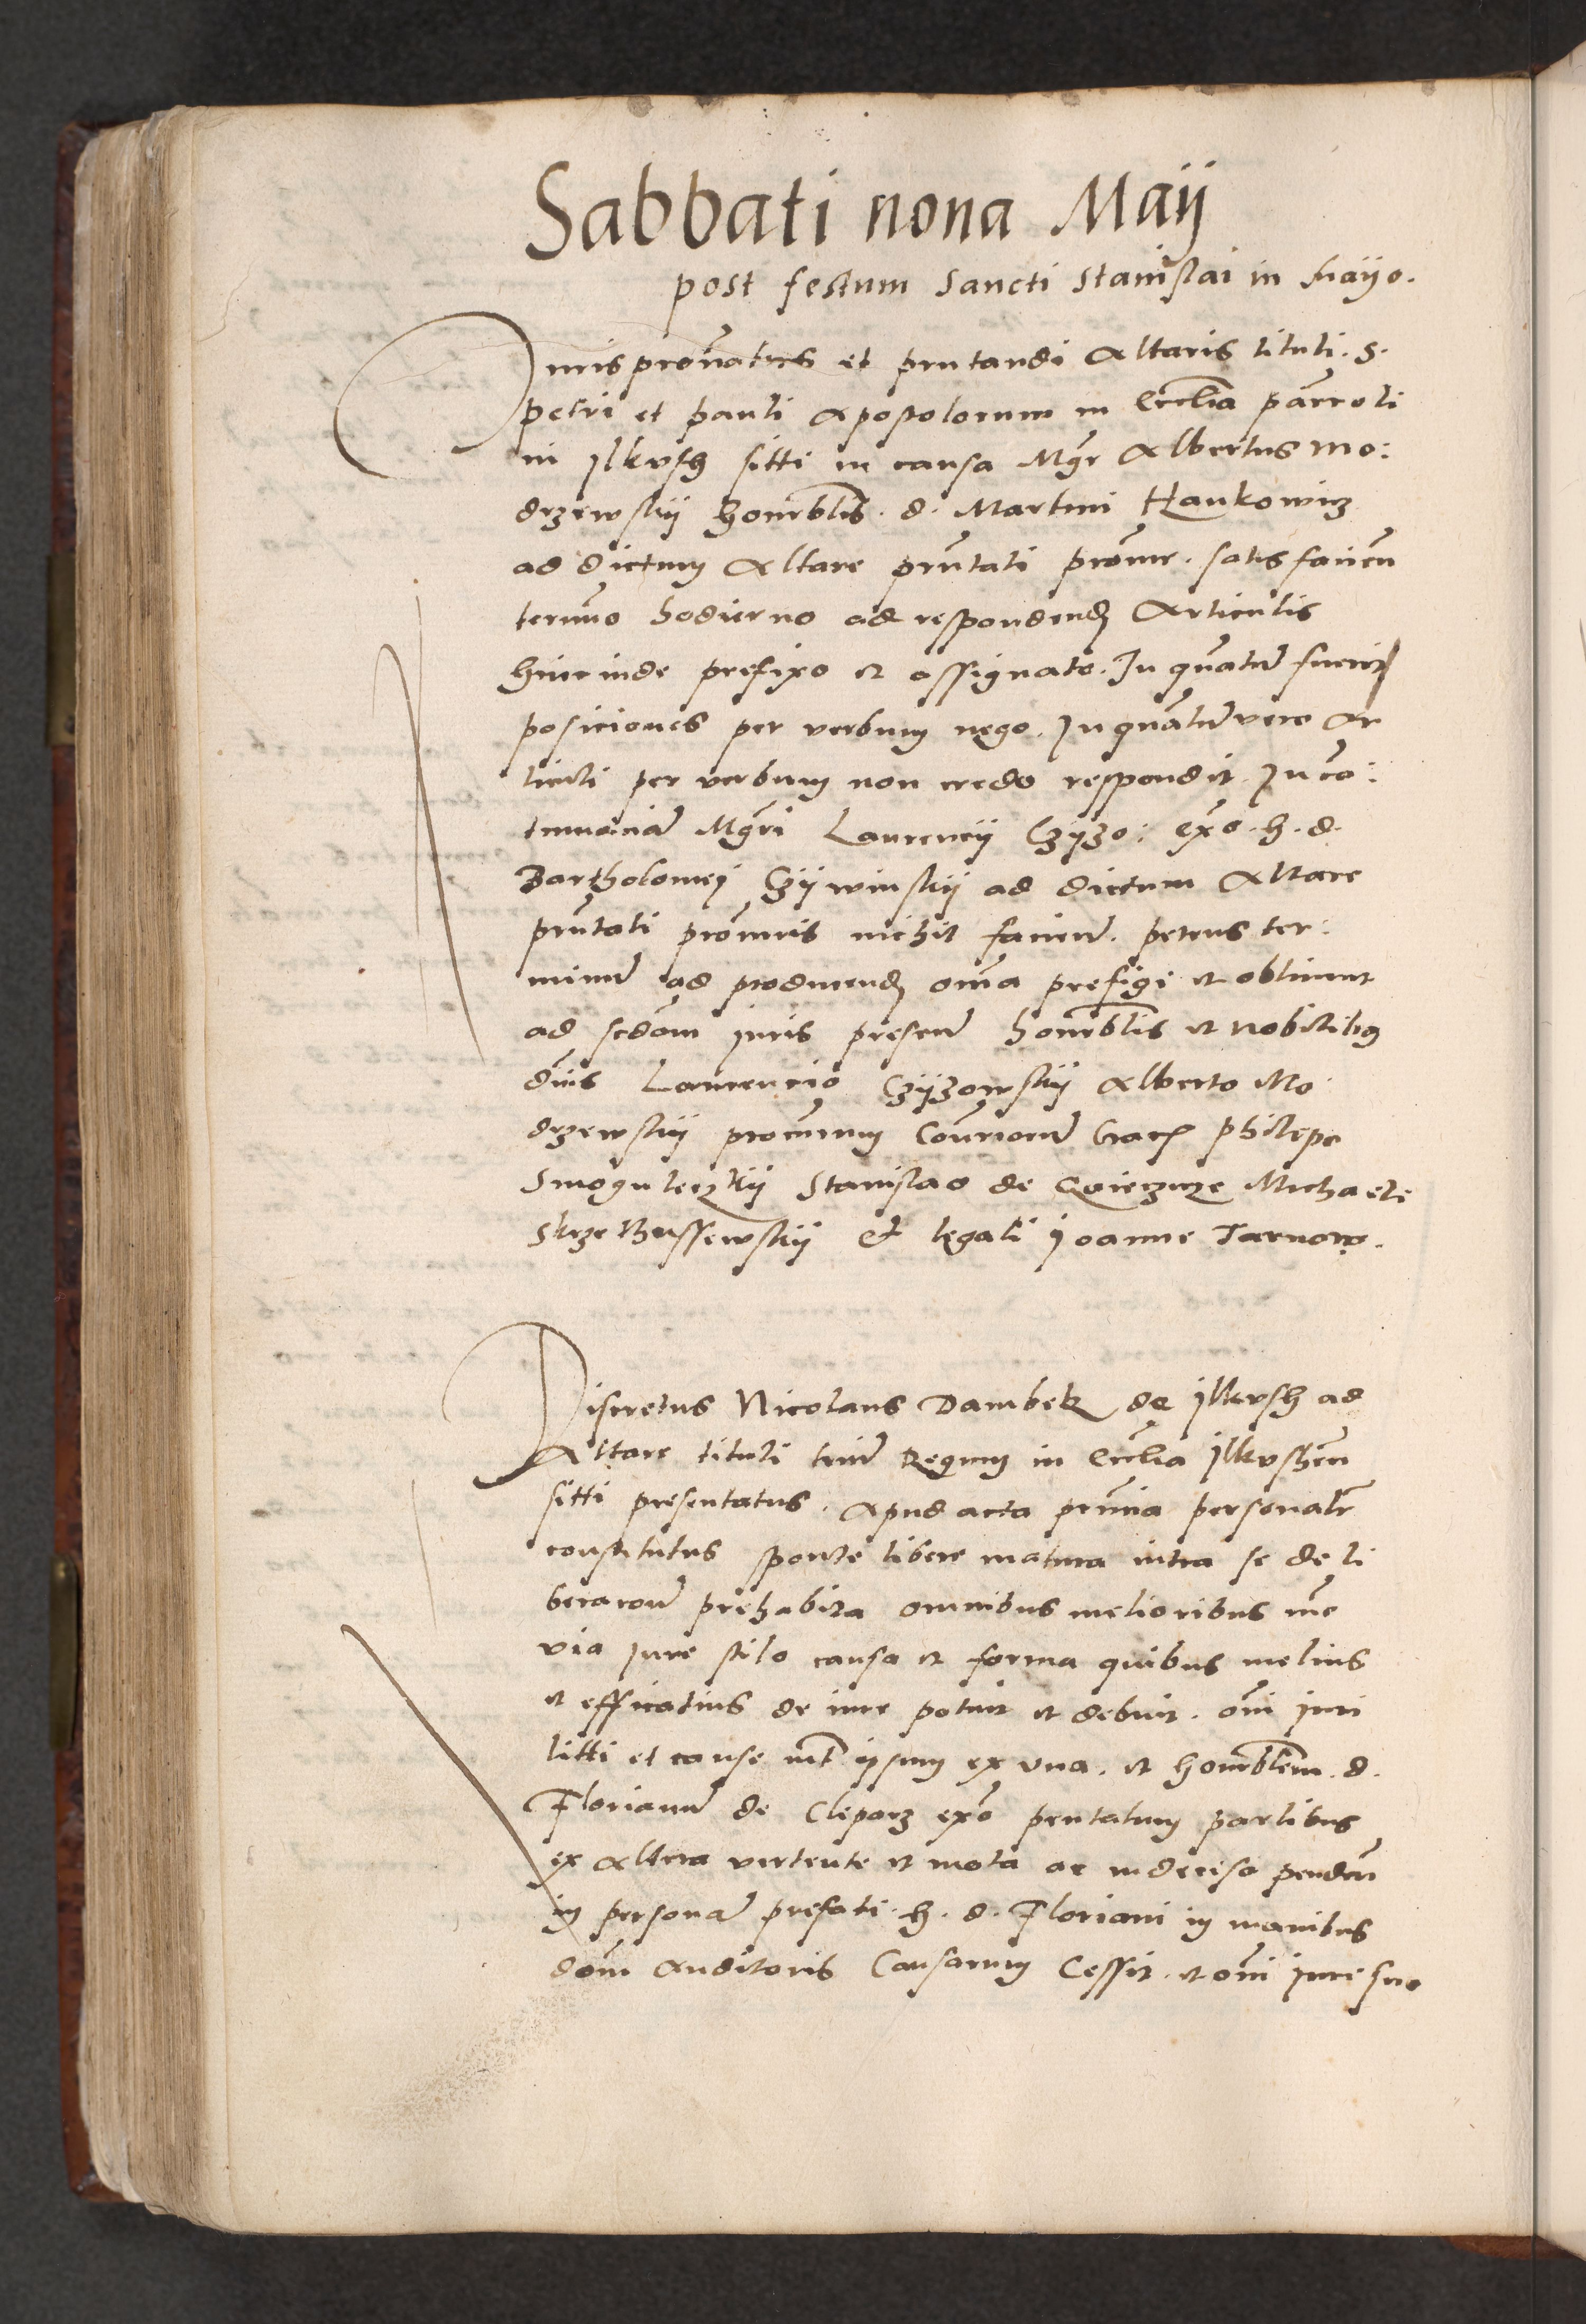 Sabbati nona Maij
post festum Sancti Stanislai in Maijo.
Juris pro͞natus et pn̄tandi Altaris tituli. S.
Petri et Pauli Apostolorum in Eccl͞ia par͞roli
in Jlkvsch sitti in causa Mg̅r Albertus Mo:
drzewskij honorabl͞is. d. Martini Hankowicz
ad dictum Altare pn̄tati pro͞cur. satisfacien̄
termi͞no hodierno ad respondend̄ Articulis
hincinde prefixo et assignato. In quan̄tum fuerit
posiciones per verbum nego. In quan̄tum vero Ar
ticuli per verbum non credo respondit. In co͞:
tumaciam Mg̅ri Laurencij Czyzo: ex͞o. h. d.
Bartholomej Czijwinskij ad dictum Altare
pn̄tati pro͞curis nichil facien̄. petens ter:
minum ad producend̄ om̄ia prefigi et obtinuit
ad scd̄am iuris presen̄ honorabl͞is et nobilibus
dn̄is Laurencio Czijzowskij Alberto Mo
drzewskij procurat͞um Con̄riorum Crac̄ Philipo
Smoguleczkij Stanislao de Michaele
Skrzethussewskij et legali Joanne Tarnow.
Discretus Nicolaus Dambek de Jlkvsch ad
Altare tituli trium Regum in Eccl͞ia Jlkvschen̄
sitti presentatus. Apud acta pn̄cia personalr̄
constitutus sponte libere matura intra se deli
beracon̄e prehabita omnibus melioribus m͞o
via Jure stilo causa et forma quibus melius
et efficatius de iure potuit et debuit. om̄i Juri
litti et cause int̄ ipsum ex vna. et honorabl͞em. d.
Florianum de Cleparz ex͞o pn̄tatum partibus
ex Altera vertente et mota ac indecisa penden̄
in personam prefati. h. d. Floriani in manibus
dom̄ Auditoris Causarum Cessit. et om̄i Jure suo